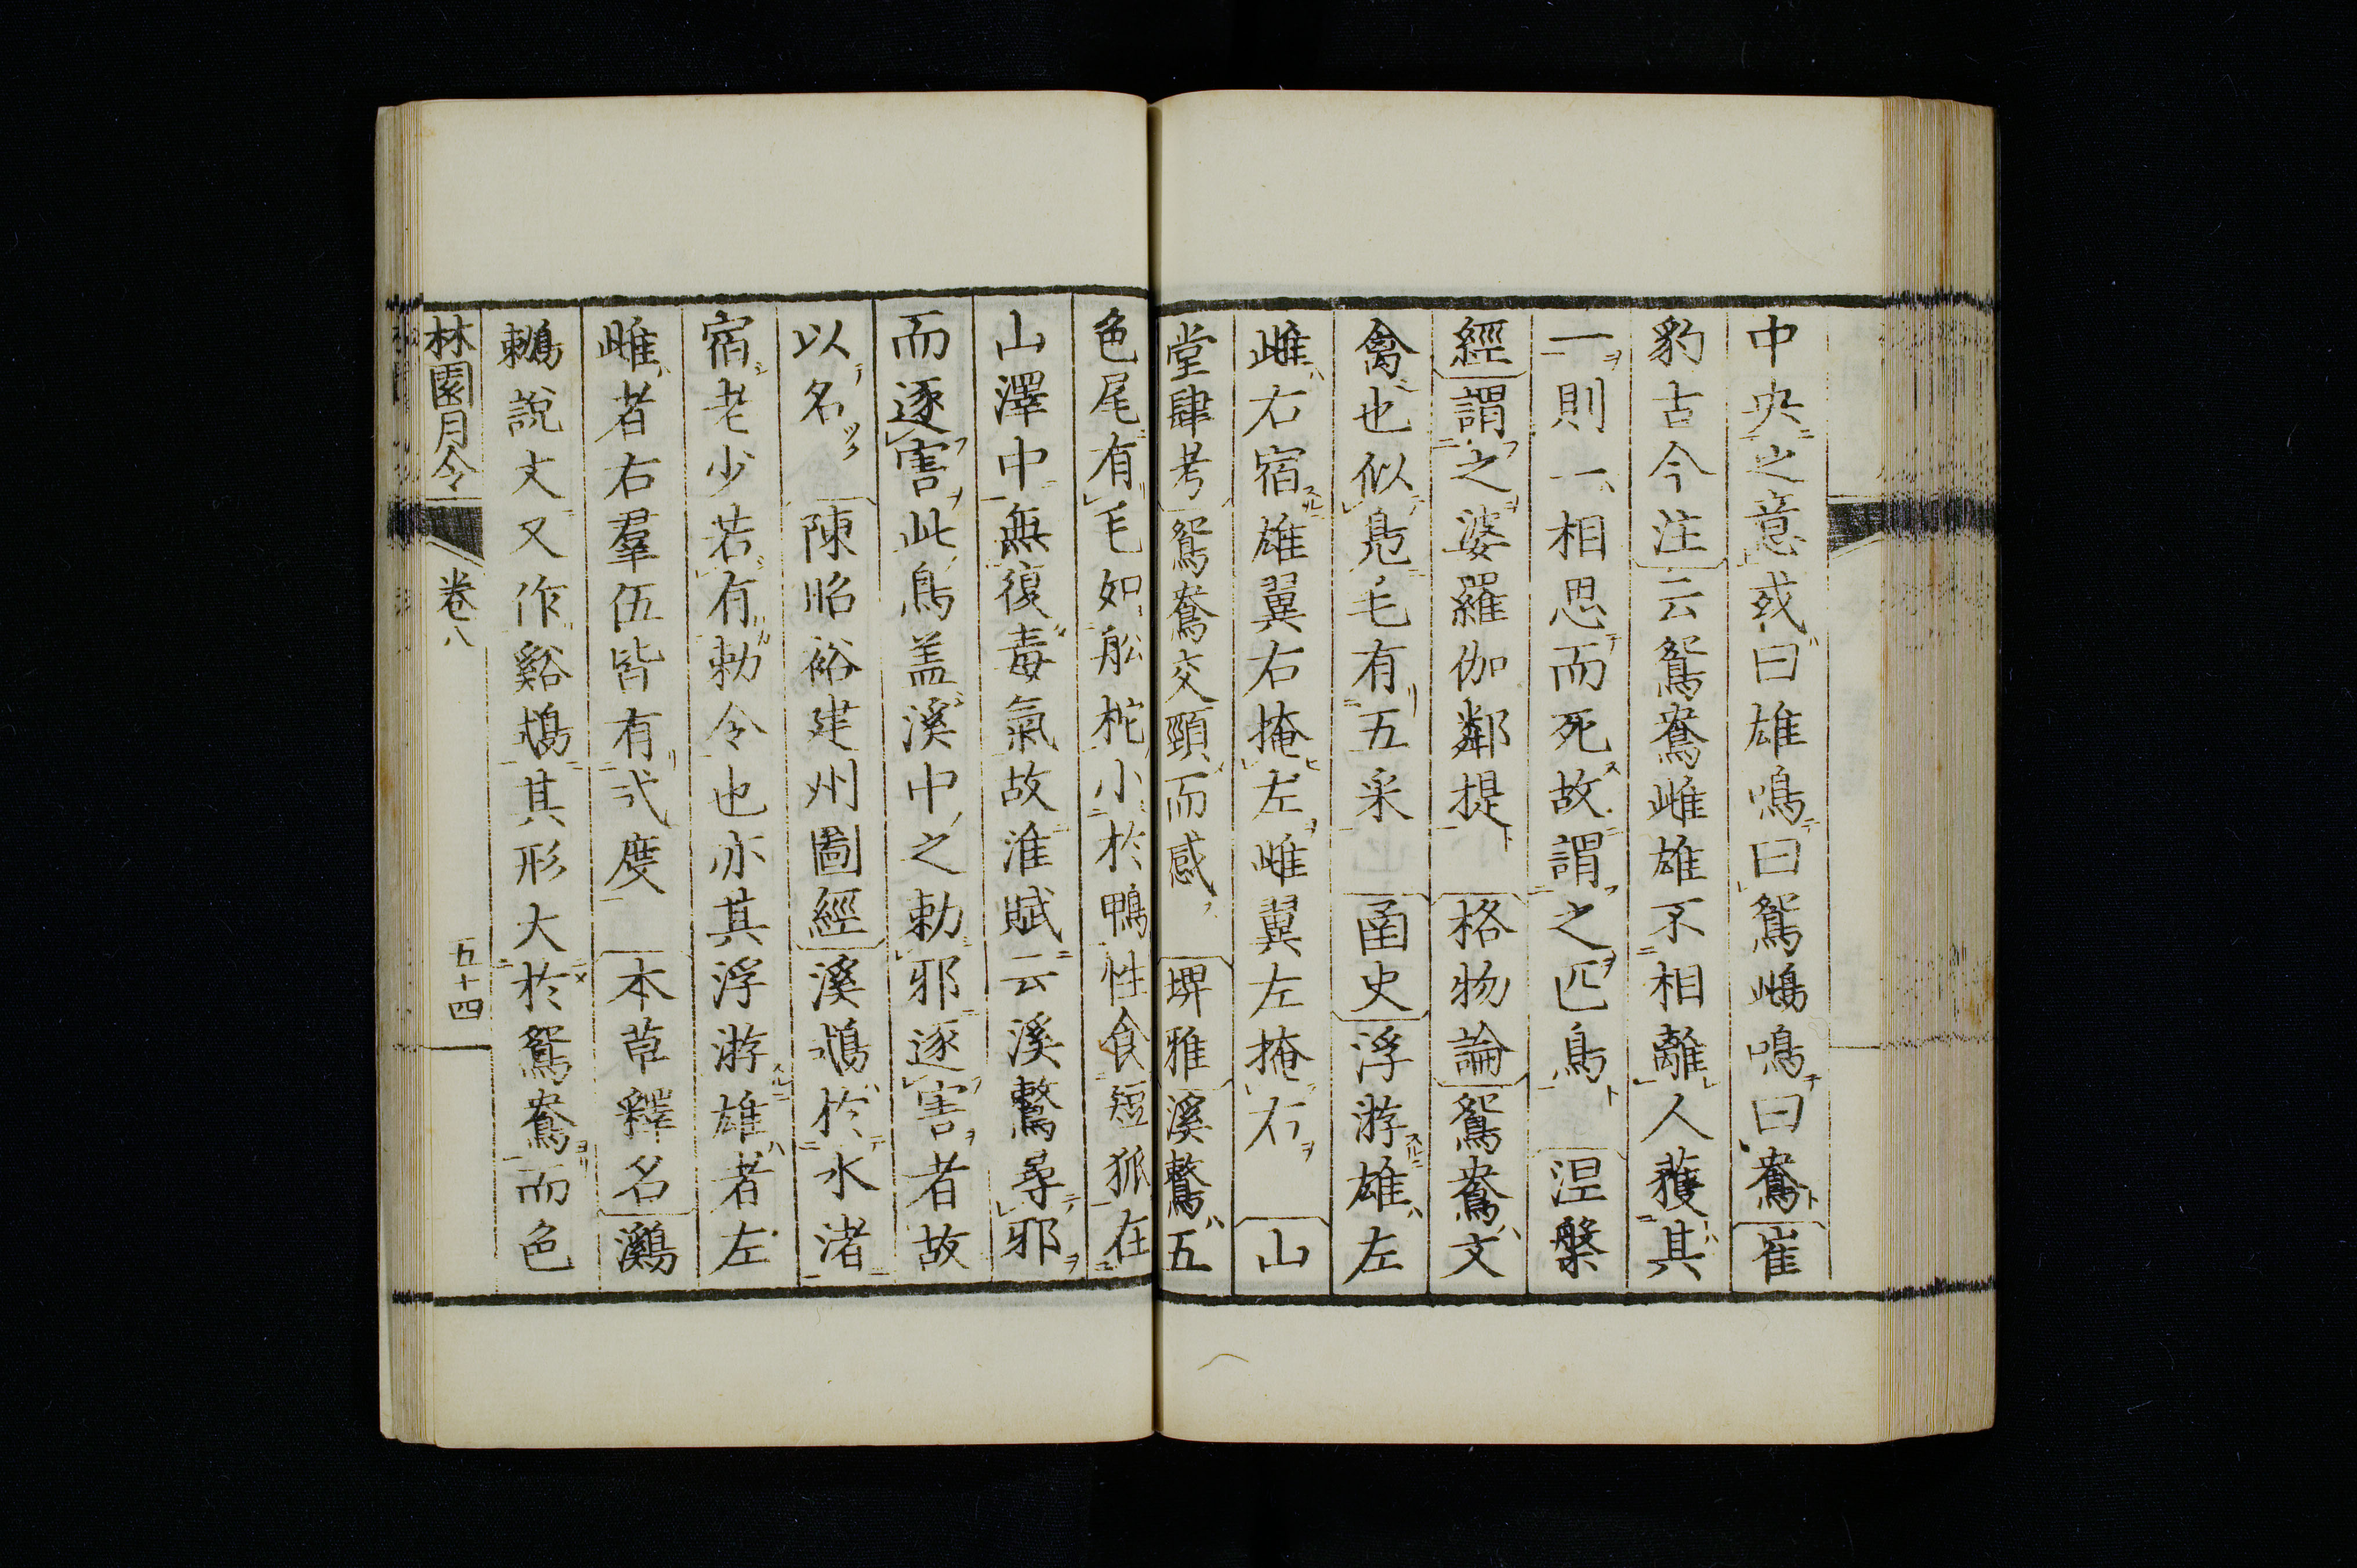 中央之意或曰雄鳴曰鴛鴟鳴曰鴦崔
豹古今注云鴛鴦雌雄不相離人獲其
一則一相思而死故謂之匹鳥 涅槃
經謂之婆羅伽鄰提 格物論鴛鴦文
禽也似鳧毛有五采 凾史浮游雄左
雌右宿雄翼右掩左雌翼左掩右 山
堂肆考鴛鴦交頸而感 埤雅溪鷘五
色尾有毛如舩柁小於鴨性食短狐在
山澤中無復毒氣故淮賦云溪鷘尋邪
而逐害此鳥盖溪中之勅邪逐害者故
以名 陳昭裕建州圖經溪鶒於水渚
宿老少若有勅令也亦其浮游雄者左
雌者右羣伍皆有式度 本草釋名鸂
鶒說文又作谿鶒其形大於鴛鴦而色
林園月令 卷八 五十四